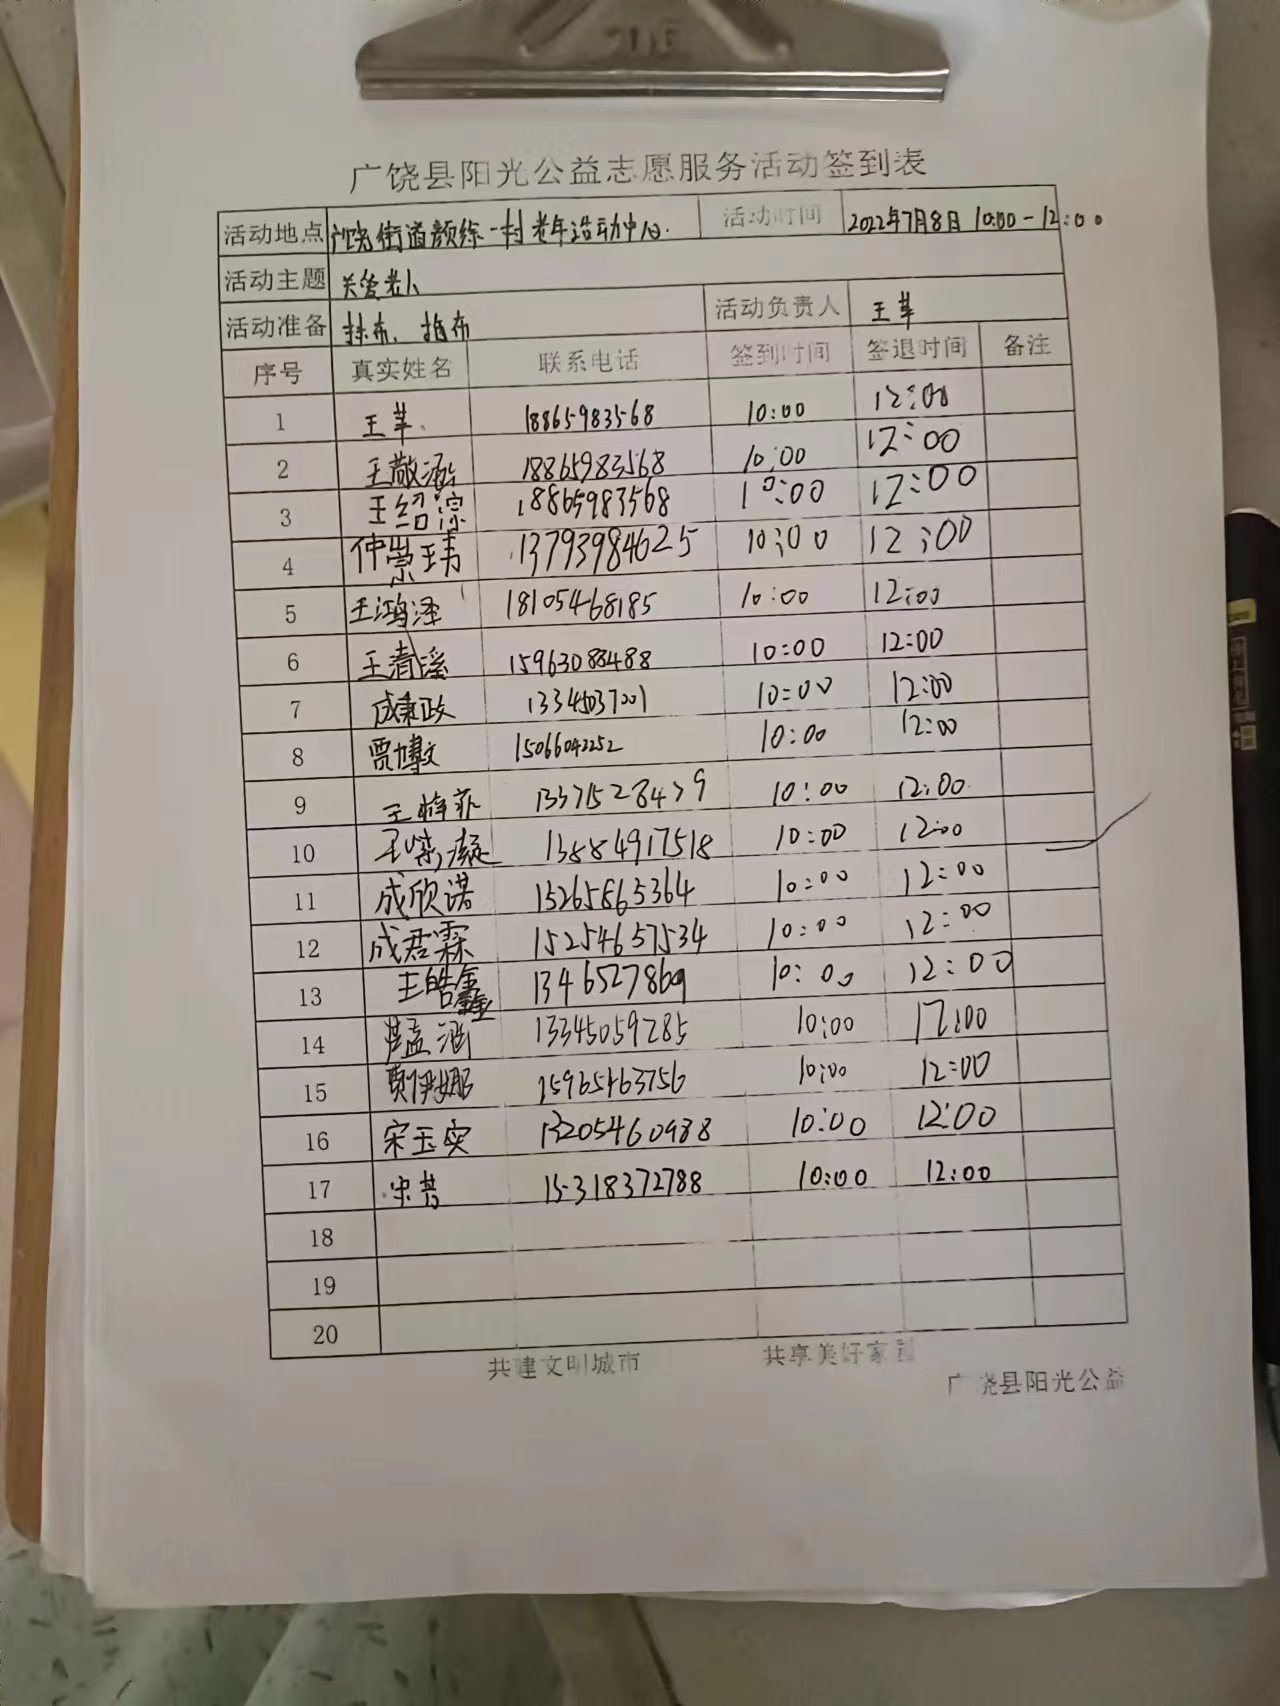 广饶县阳光公益志愿服务活动签到表
活动地点 广饶街道颜徐一村老年活动中心. 活动时间 2022年7月8日 10:00-12:00
活动主题 关爱老人
活动准备 抹布、拖布 活动负责人 王苹
序号 真实姓名 联系电话 签到时间 签退时间 备注
1 王苹. 18865983568 10:00 12:00
2 王敬涵 18865983568 10:00 12:00
3 王绍淙 18865983568 10:00 12:00
4 仲崇玮 13793984625 10:00 12:00
5 王鸿泽 18105468185 10:00 12:00
6 王清溪 15963088488 10:00 12:00
7 成秉政 13345037001 10:00 12:00
8 贾博文 15066042252 10:00 12:00
9 王梓菲 1337528479 10:00 12:00
10 王紫凝 13884917518 10:00 12:00
11 成欣诺 15265865364 10:00 12:00
12 成君霖 15254657534 10:00 12:00
13 王皓鑫 1346527869 10:00 12:00
14 孟涵 13345059285 10:00 12:00
15 伊娜 15965463756 10:00 12:00
16 宋玉实 13205460988 10:00 12:00
17 宋芸 15318372788 10:00 12:00
18
19
20
共建文明城市 共享美好家园
广饶县阳光公益